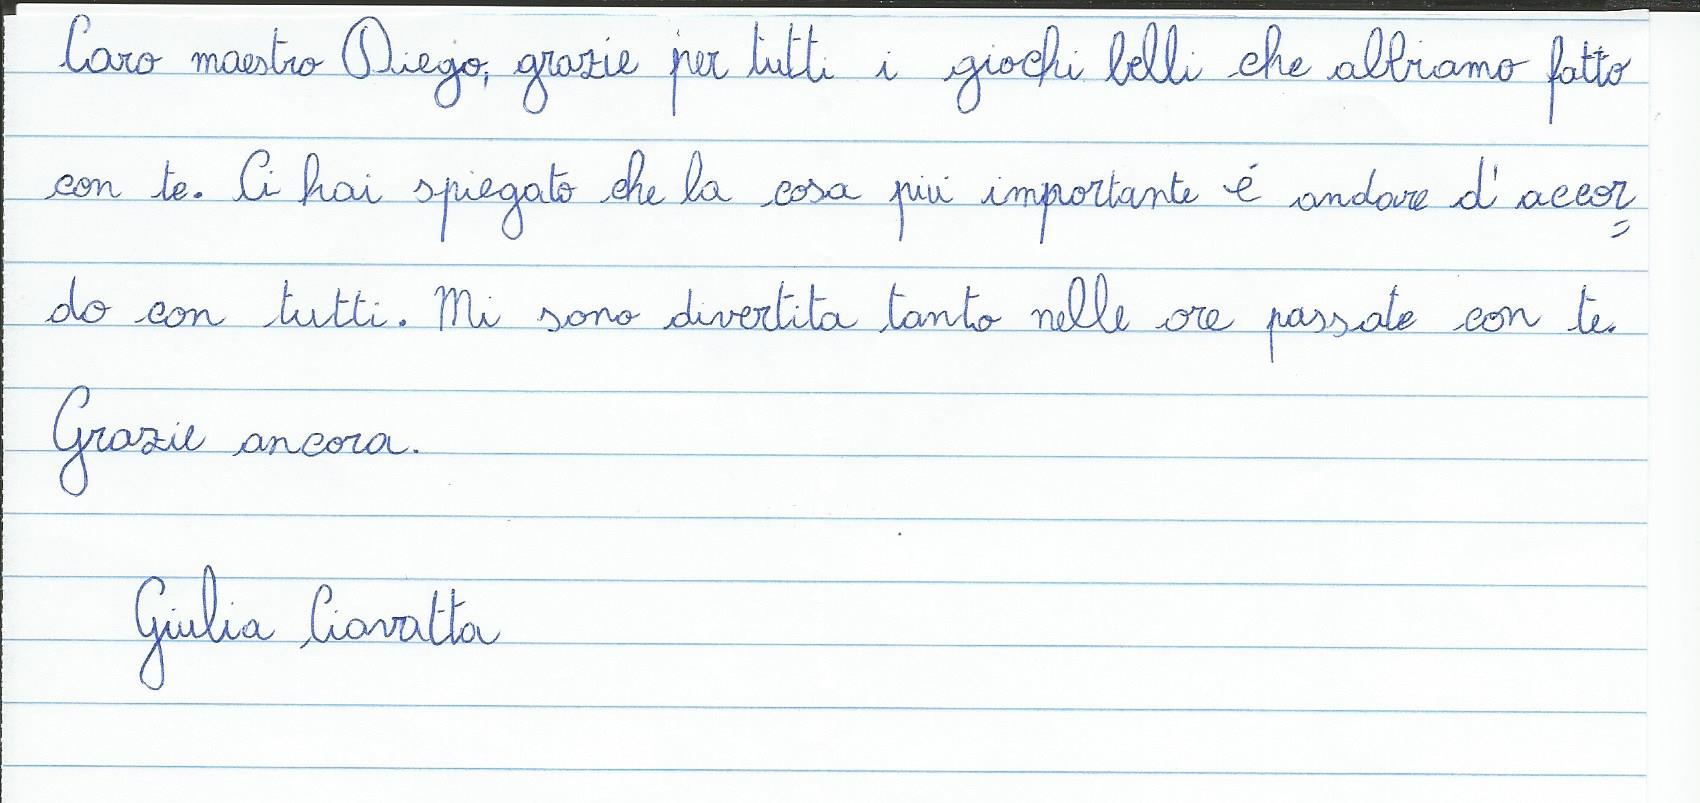 Caro maestro Diego, grazie per tutti i giochi belli che abbiamo fatto
con te. Ci hai spiegato che la cosa piú importante é andare d'accor=
do con tutti. Mi sono divertita tanto nelle ore passate con te.
Grazie ancora.
Giulia Ciavatta